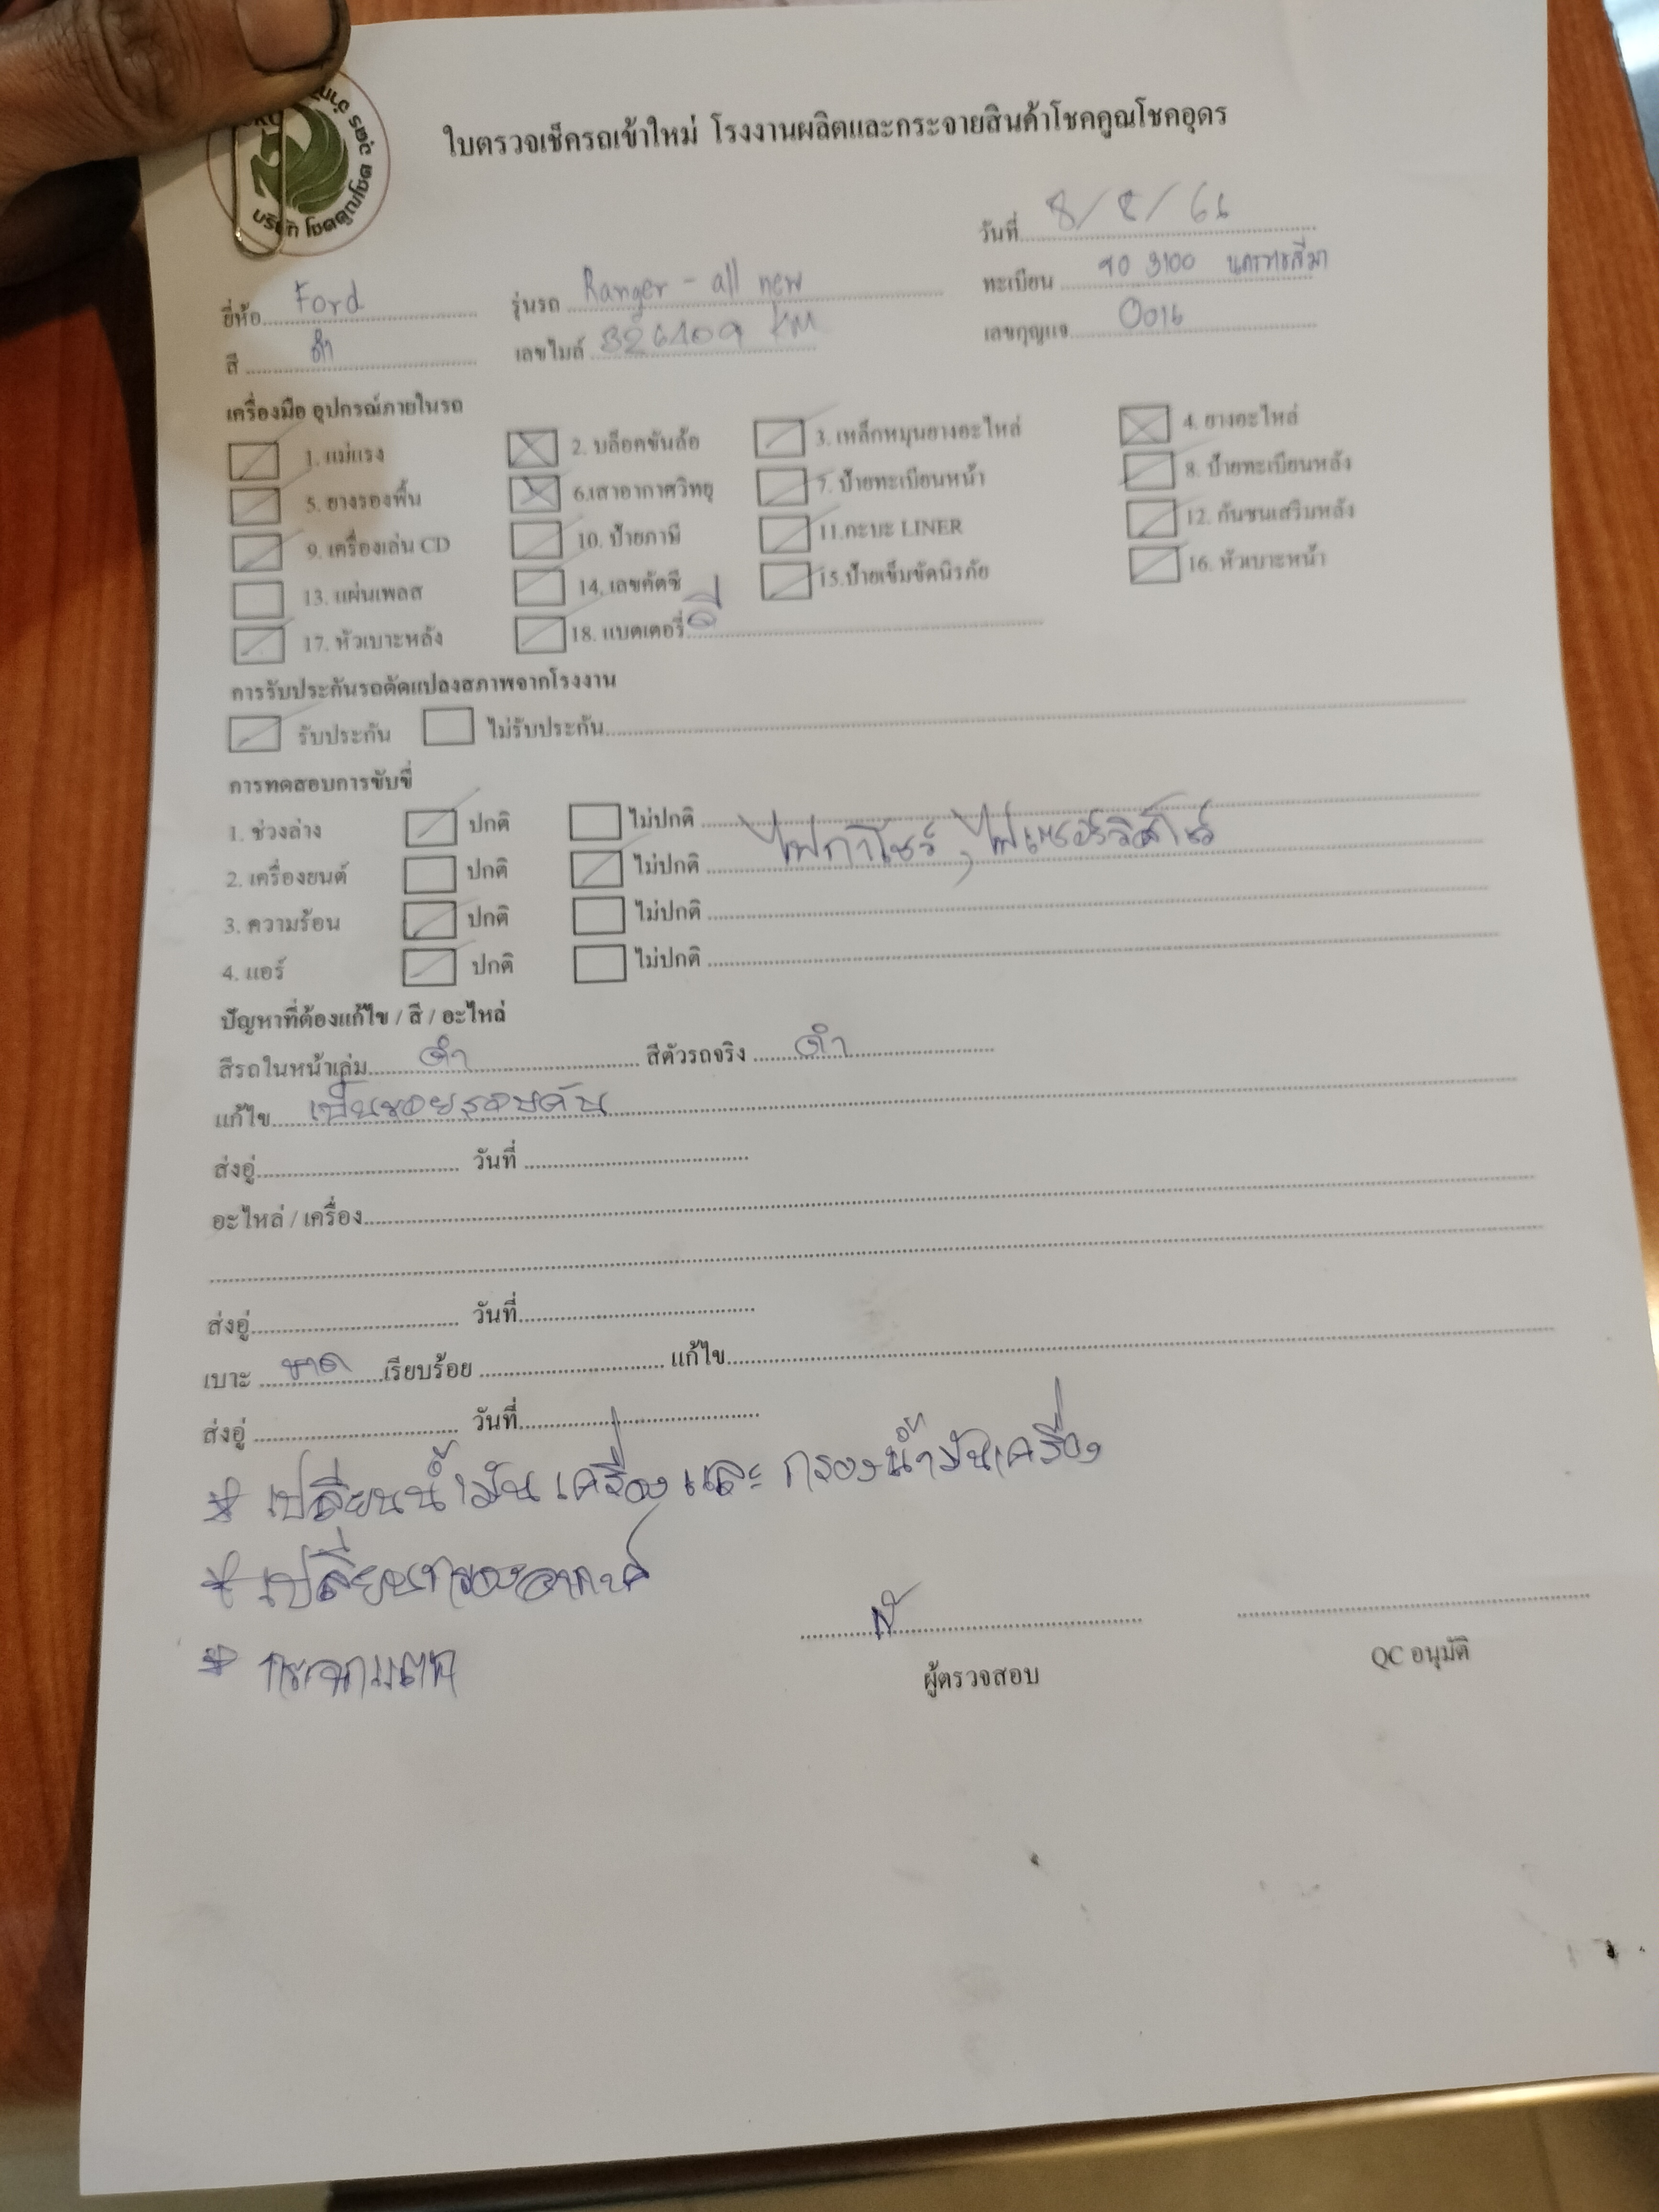 บริษัท โชคคูณโชค อุดร จำกัด
ใบตรวจเช็ครถเข้าใหม่ โรงงานผลิตและกระจายสินค้าโชคคูณโชคอุดร
วันที่ 8/8/66
ยี่ห้อ Ford รุ่นรถ Ranger - all new ทะเบียน 3100 นครราชสีมา
สี ดำ เลขไมล์ KM เลขกุญแจ 0016
เครื่องมือ อุปกรณ์ภายในรถ
1. แม่แรง 2. บล็อคขันล้อ 3. เหล็กหมุนยางอะไหล่ 4. ยางอะไหล่
5. ยางรองพื้น 6.เสาอากาศวิทยุ 7. ป้ายทะเบียนหน้า 8. ป้ายทะเบียนหลัง
9. เครื่องเล่น CD 10. ป้ายภาษี 11.กะบะ LINER 12. กันชนเสริมหลัง
13. แผ่นเพลส 14. เลขคัตซี 15.ป้ายเข็มขัดนิรภัย 16. หัวเบาะหน้า
17. หัวเบาะหลัง 18. แบตเตอรี่ ดี
การรับประกันรถดัดแปลงสภาพจากโรงงาน
รับประกัน ไม่รับประกัน
การทดสอบการขับขี่
1. ช่วงล่าง ปกติ ไม่ปกติ
2. เครื่องยนต์ ปกติ ไม่ปกติ ไฟกาโชว์ , ไฟเซอร์วิสโชว์
3. ความร้อน ปกติ ไม่ปกติ
4. แอร์ ปกติ ไม่ปกติ
ปัญหาที่ต้องแก้ไข / สี / อะไหล่
สีรถในหน้าเล่ม ดำ สีตัวรถจริง ดำ
แก้ไข เป็นรอยรอบคัน
ส่งอู่ วันที่
อะไหล่ / เครื่อง
ส่งอู่ วันที่
เบาะ ขาด เรียบร้อย แก้ไข
ส่งอู่ วันที่
* เปลี่ยนน้ำมันเครื่อง และ กรองน้ำมันเครื่อง
* เปลี่ยนกรองอากาศ
* กระจกแตก
ผู้ตรวจสอบ QC อนุมัติ